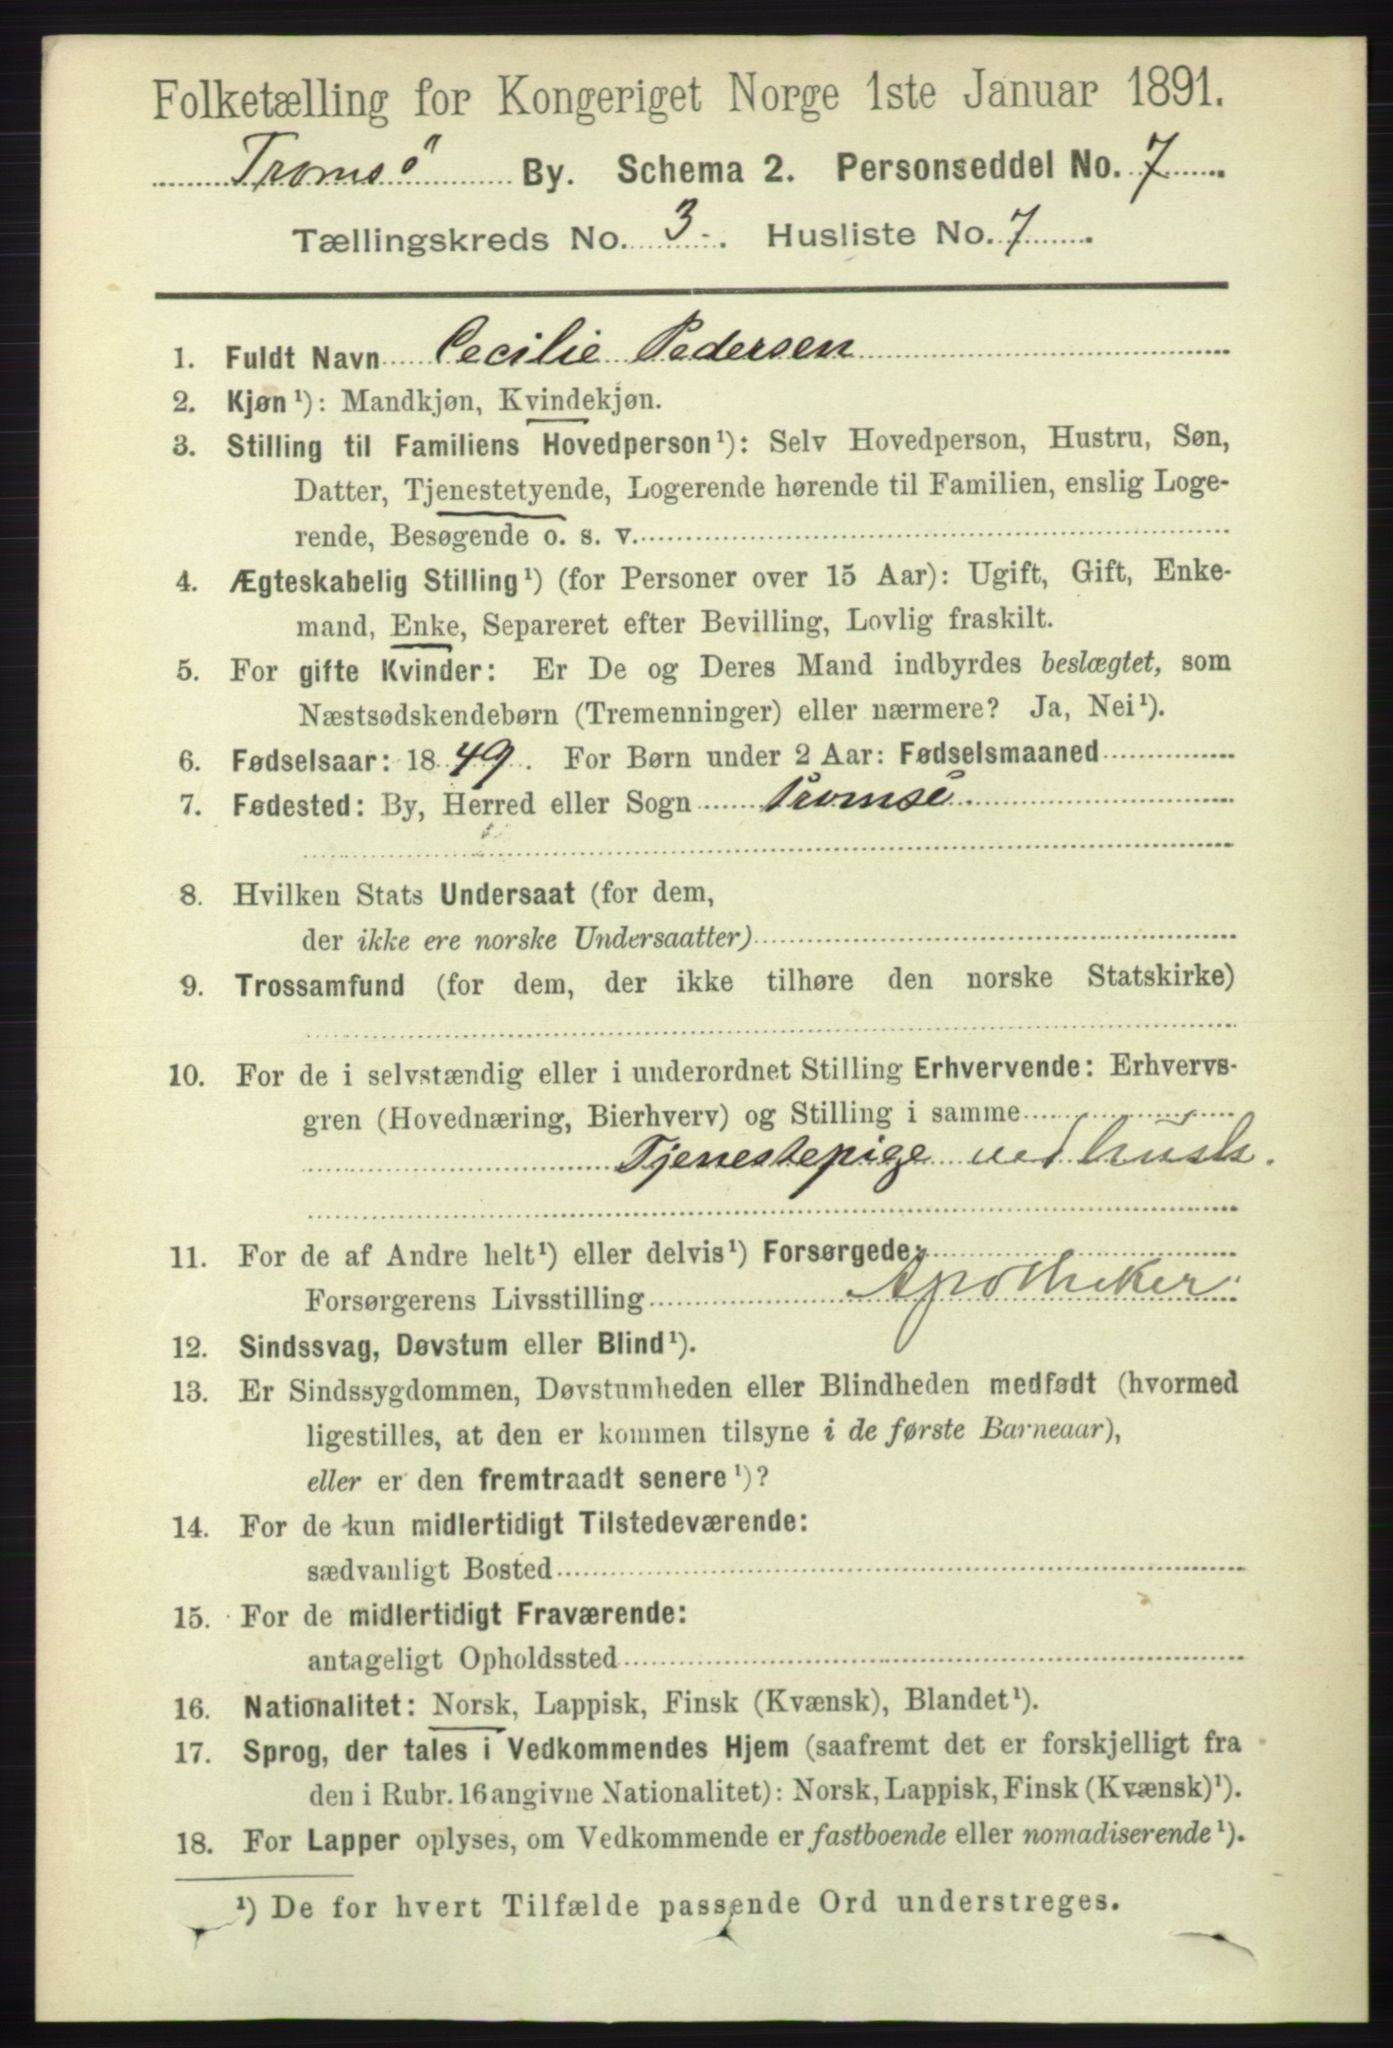 Folketælling for Kongeriget Norge 1ste Januar 1891.
Tromsö By. Schema 2. Personseddel No. 7
Tællingskreds No. 3. Husliste No. 7
1. Fuldt Navn Cecilie Pedersen
2. Kjøn¹): Mandkjøn, Kvindekjøn.
3. Stilling til Familiens Hovedperson¹): Selv Hovedperson, Hustru, Søn,
Datter, Tjenestetyende, Logerende hørende til Familien, enslig Loge-
rende, Besøgende o. s. v.
4. Ægteskabelig Stilling¹) (for Personer over 15 Aar): Ugift, Gift, Enke-
mand, Enke, Separeret efter Bevilling, Lovlig fraskilt.
5. For gifte Kvinder: Er De og Deres Mand indbyrdes beslægtet, som
Næstsødskendebørn (Tremenninger) eller nærmere? Ja, Nei¹).
6. Fødselsaar: 1849. For Børn under 2 Aar: Fødselsmaaned
7. Fødested: By, Herred eller Sogn Tromsø
8. Hvilken Stats Undersaat (for dem,
der ikke ere norske Undersaatter)
9. Trossamfund (for dem, der ikke tilhøre den norske Statskirke)
10. For de i selvstændig eller i underordnet Stilling Erhvervende: Erhvervs-
gren (Hovednæring, Bierhverv) og Stilling i samme
Tjenestepige ved
11. For de af Andre helt¹) eller delvis¹) Forsørgede:
Forsørgerens Livsstilling Apotheker
12. Sindssvag, Døvstum eller Blind¹).
13. Er Sindssygdommen, Døvstumheden eller Blindheden medfødt (hvormed
ligestilles, at den er kommen tilsyne i de første Barneaar),
eller er den fremtraadt senere¹)?
14. For de kun midlertidigt Tilstedeværende:
sædvanligt Bosted
15. For de midlertidigt Fraværende:
antageligt Opholdssted
16. Nationalitet: Norsk, Lappisk, Finsk (Kvænsk), Blandet¹).
17. Sprog, der tales i Vedkommendes Hjem (saafremt det er forskjelligt fra
den i Rubr. 16 angivne Nationalitet): Norsk, Lappisk, Finsk (Kvænsk)¹).
18. For Lapper oplyses, om Vedkommende er fastboende eller nomadiserende¹).
¹) De for hvert Tilfælde passende Ord understreges.